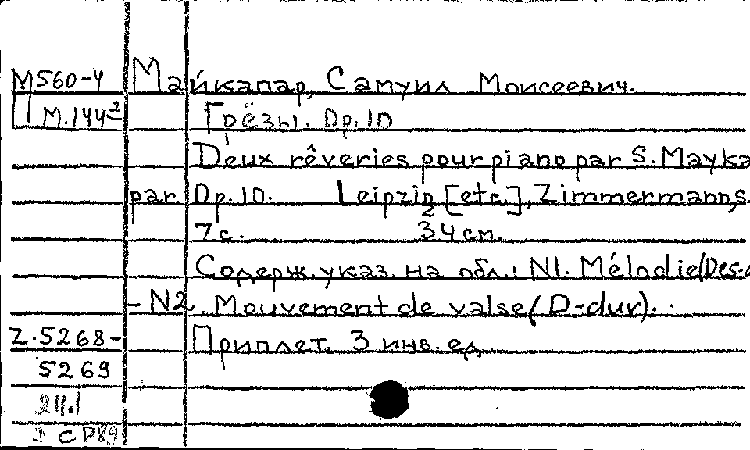 М560-4 Майкапар, Самуил Моисеевич.
М.144² Грёзы. Op.10
Deux rêveries pour piano par S. Mayka
par Op.10. Leipzig [etc.], Zimmermann, s.
7с. 34см.
Содерж. указ. на обл.: N1. Mélodie (Des-
- N2. Mouvement de valse (D-dur).
Z.5268- Приплет. 3 инв. ед.
5269